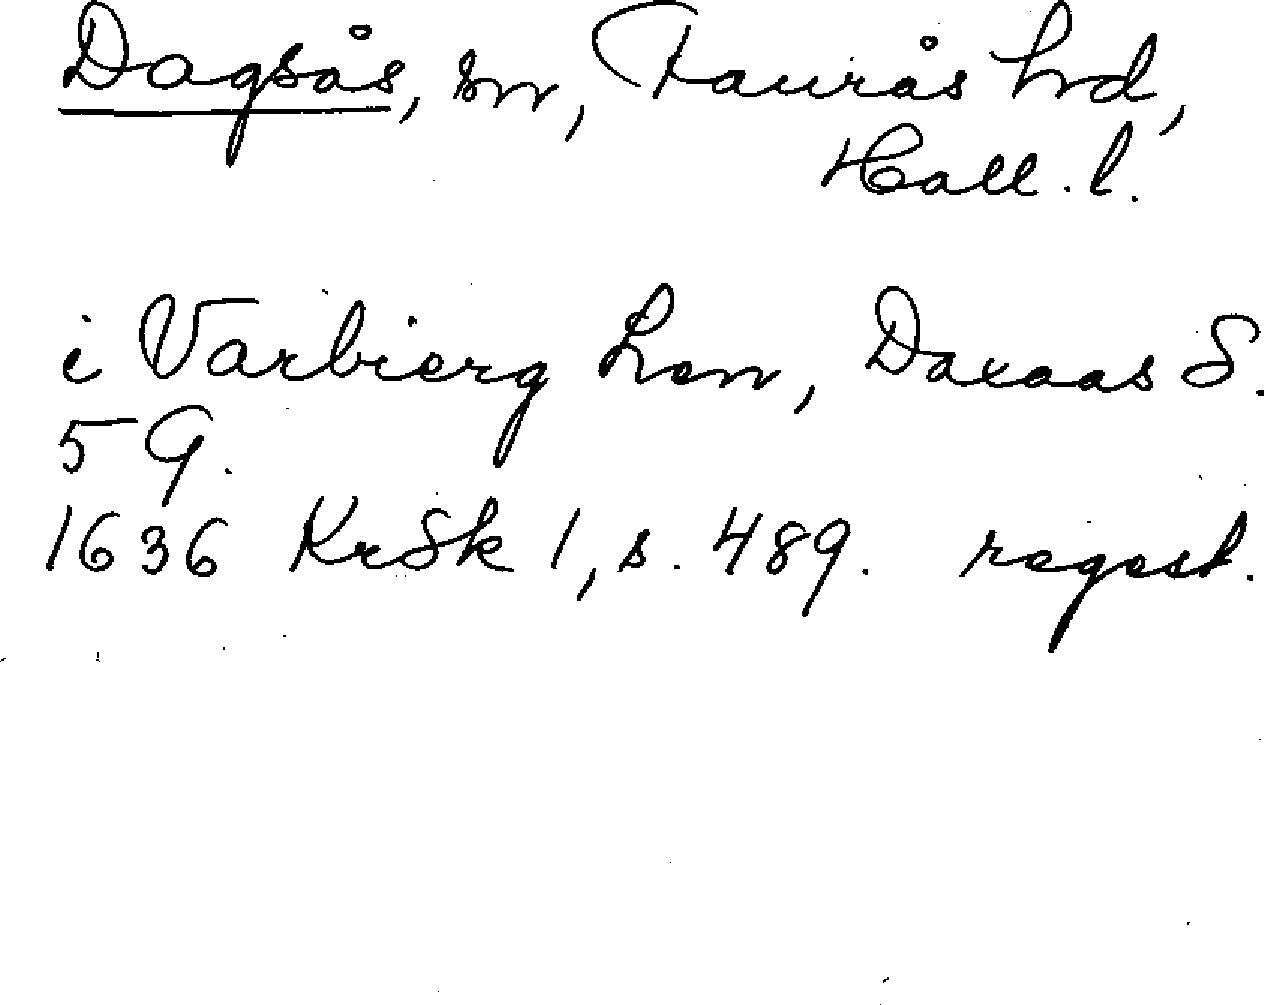 Dagsås, sn, Faurås hd,
Hall. l.
i Varbierg Len, Daxaas S.
59.
1636 KrSk 1, s. 489. regest.